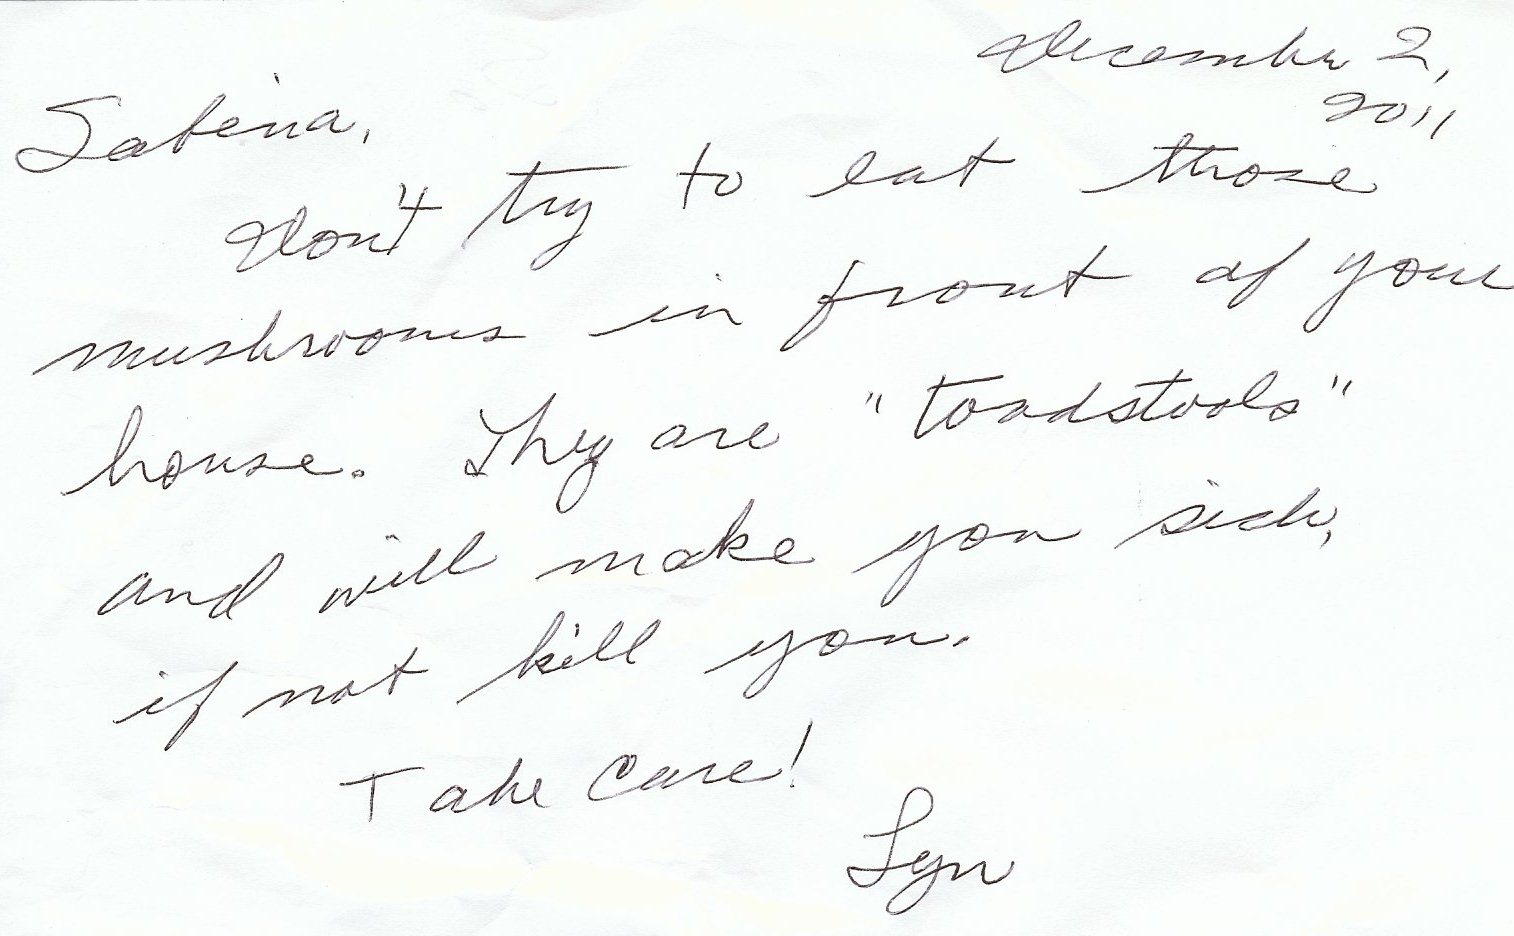 December 2,
2011
Sabina,
Don't try to eat those
mushrooms in front of your
house. They are "toadstools"
and will make you sick,
if not kill you.
Take Care!
Lyn